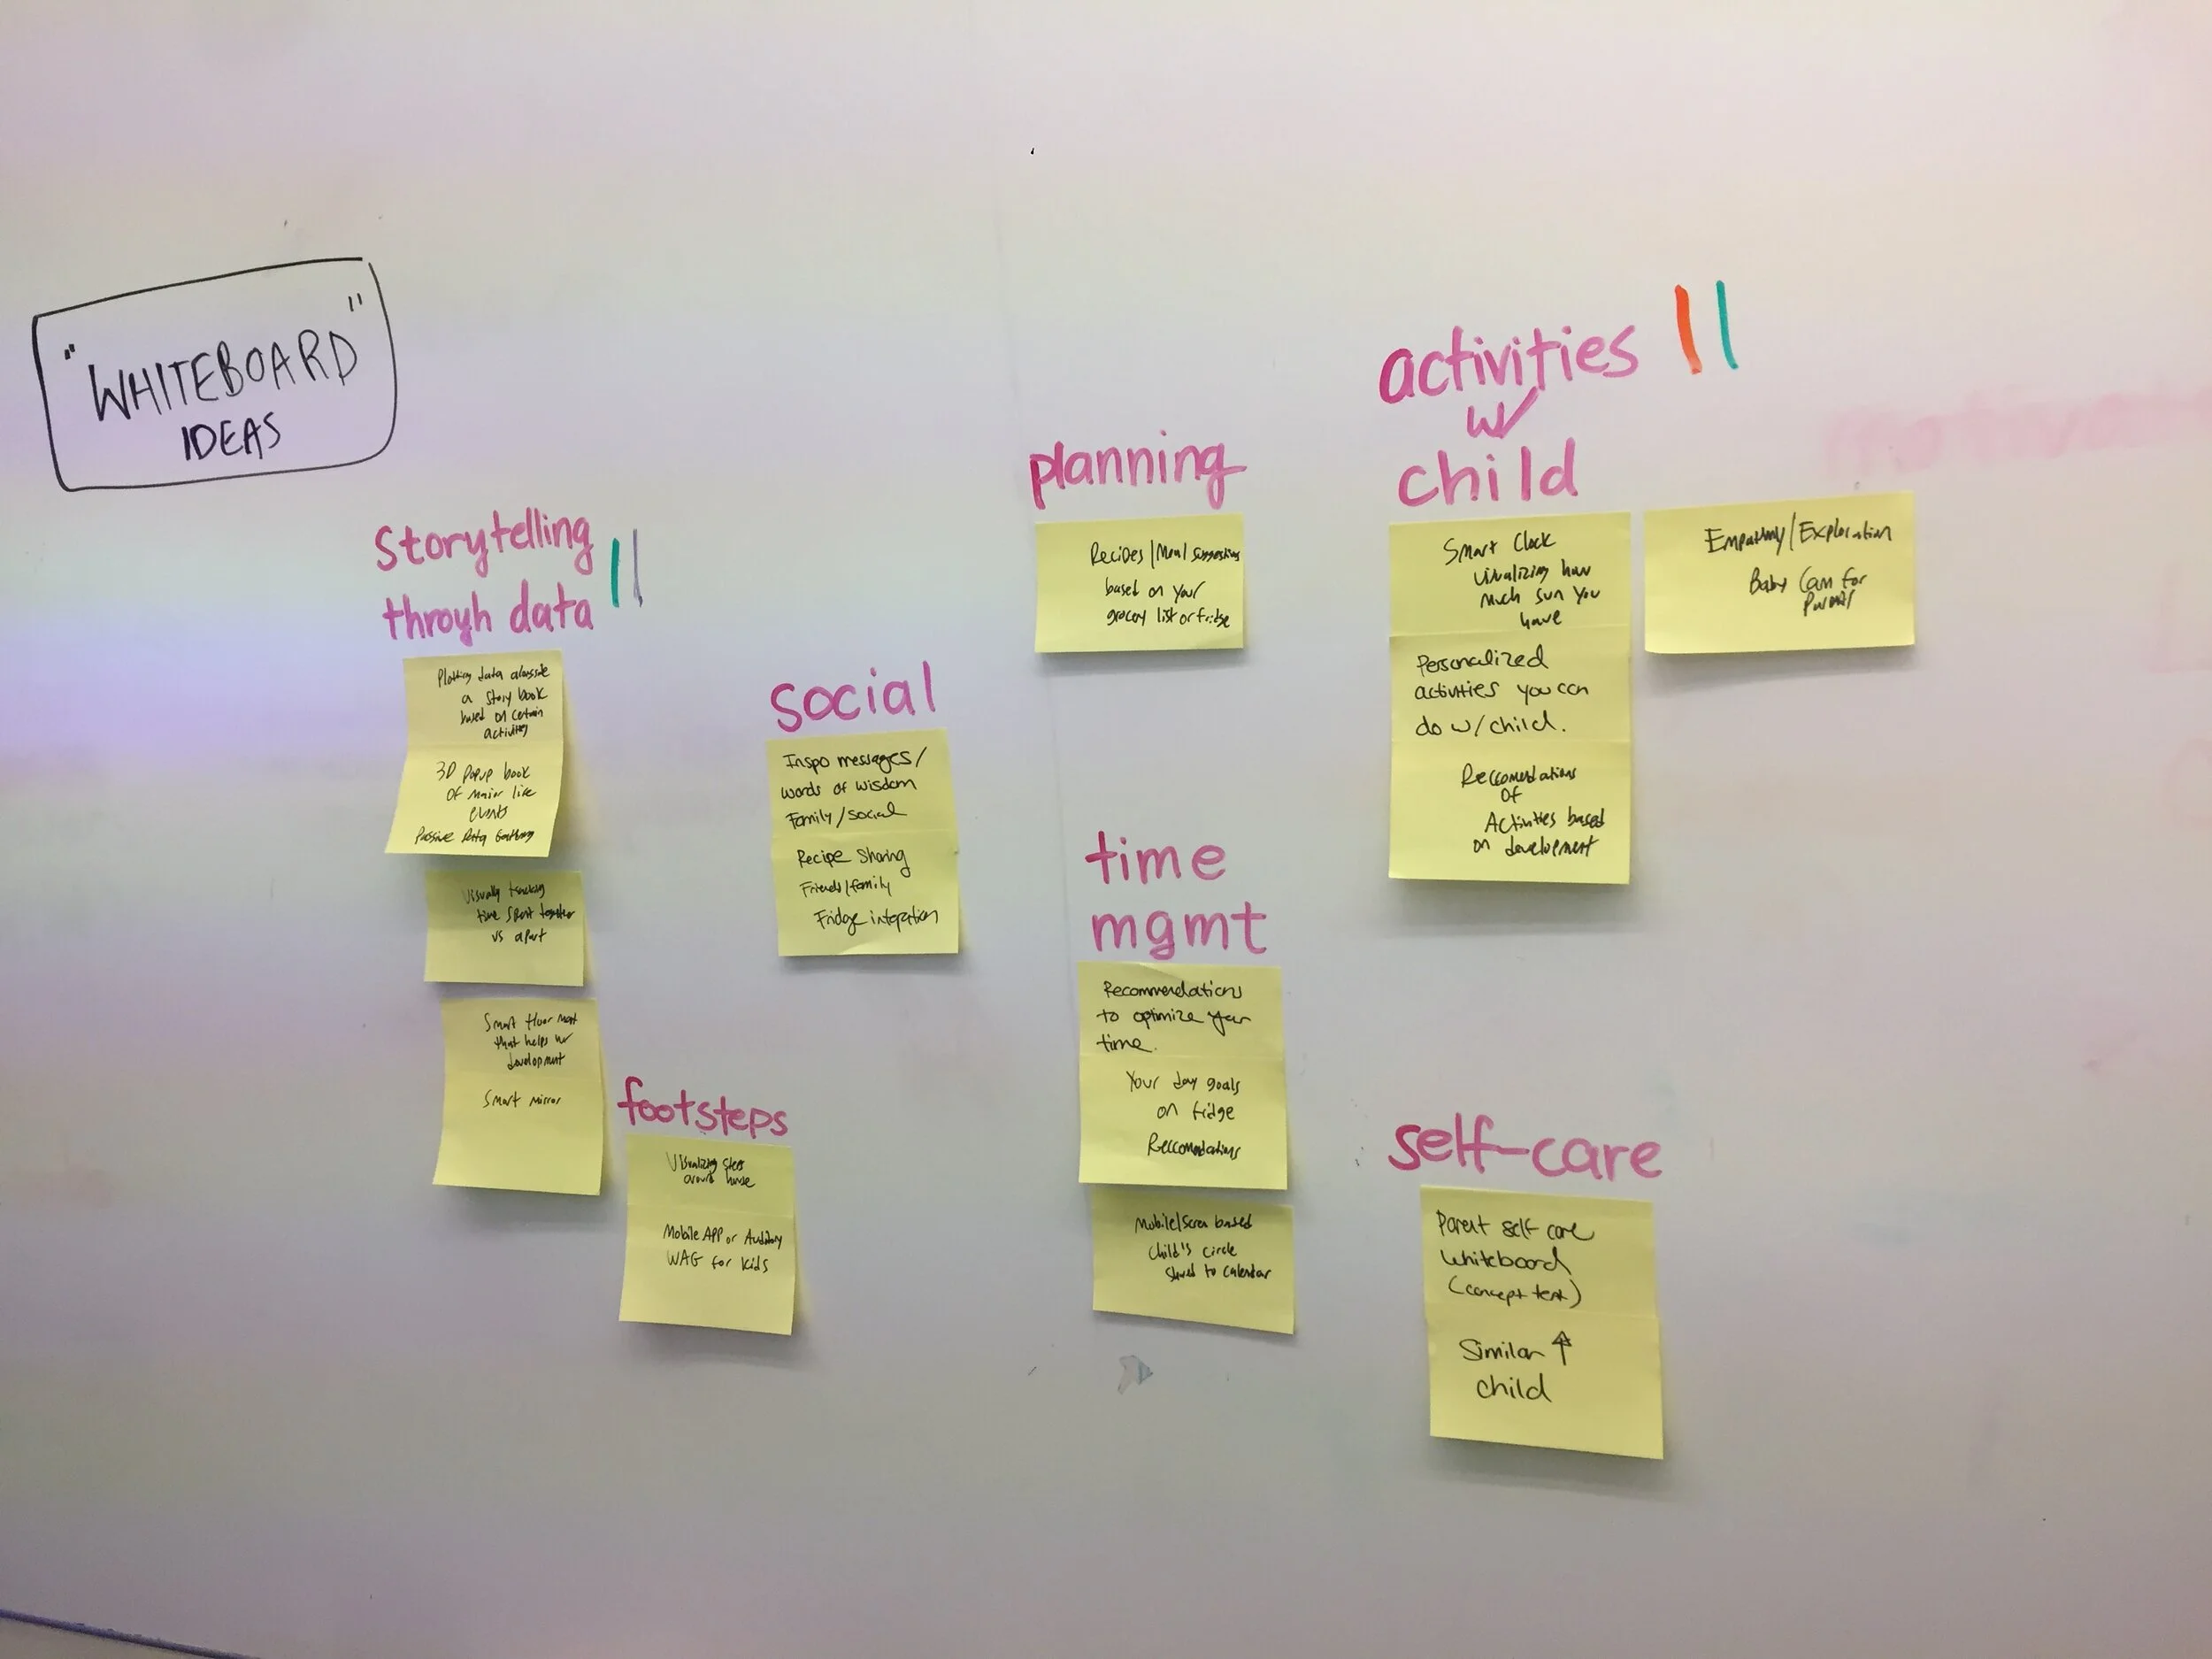 "WHITEBOARD"
IDEAS
Storytelling
throyh data
Plotting data alongside
a story book
based on certain
activities
3D Popup book
of major life
events
Passive Data Gathering
Visually tracking
time spent together
vs apart
Smart floor mat
that helps w/
development
Smart mirror
footsteps
Visualizing steps
around house
Mobile APP or Auditory
WAG for kids
social
Inspo messages/
words of wisdom
Family/social
Recipe Sharing
Friends/family
Fridge integration
planning
Recipes/Meal suggestions
based on your
grocery list or fridge
time
mgmt
Recommendations
to optimize your
time.
Your day goals
on fridge
Reccomendations
Mobile/Screen based
Child's circle
shared to calendar
activities
w/
child
Smart Clock
visualizing how
much sun you
have
Personalized
activities you can
do w/child.
Reccomendations
of
Activities based
on development
Empathy/Exploration
Baby Cam for
Parents
self-care
Parent self care
whiteboard
(concept test)
Similar ↑
child